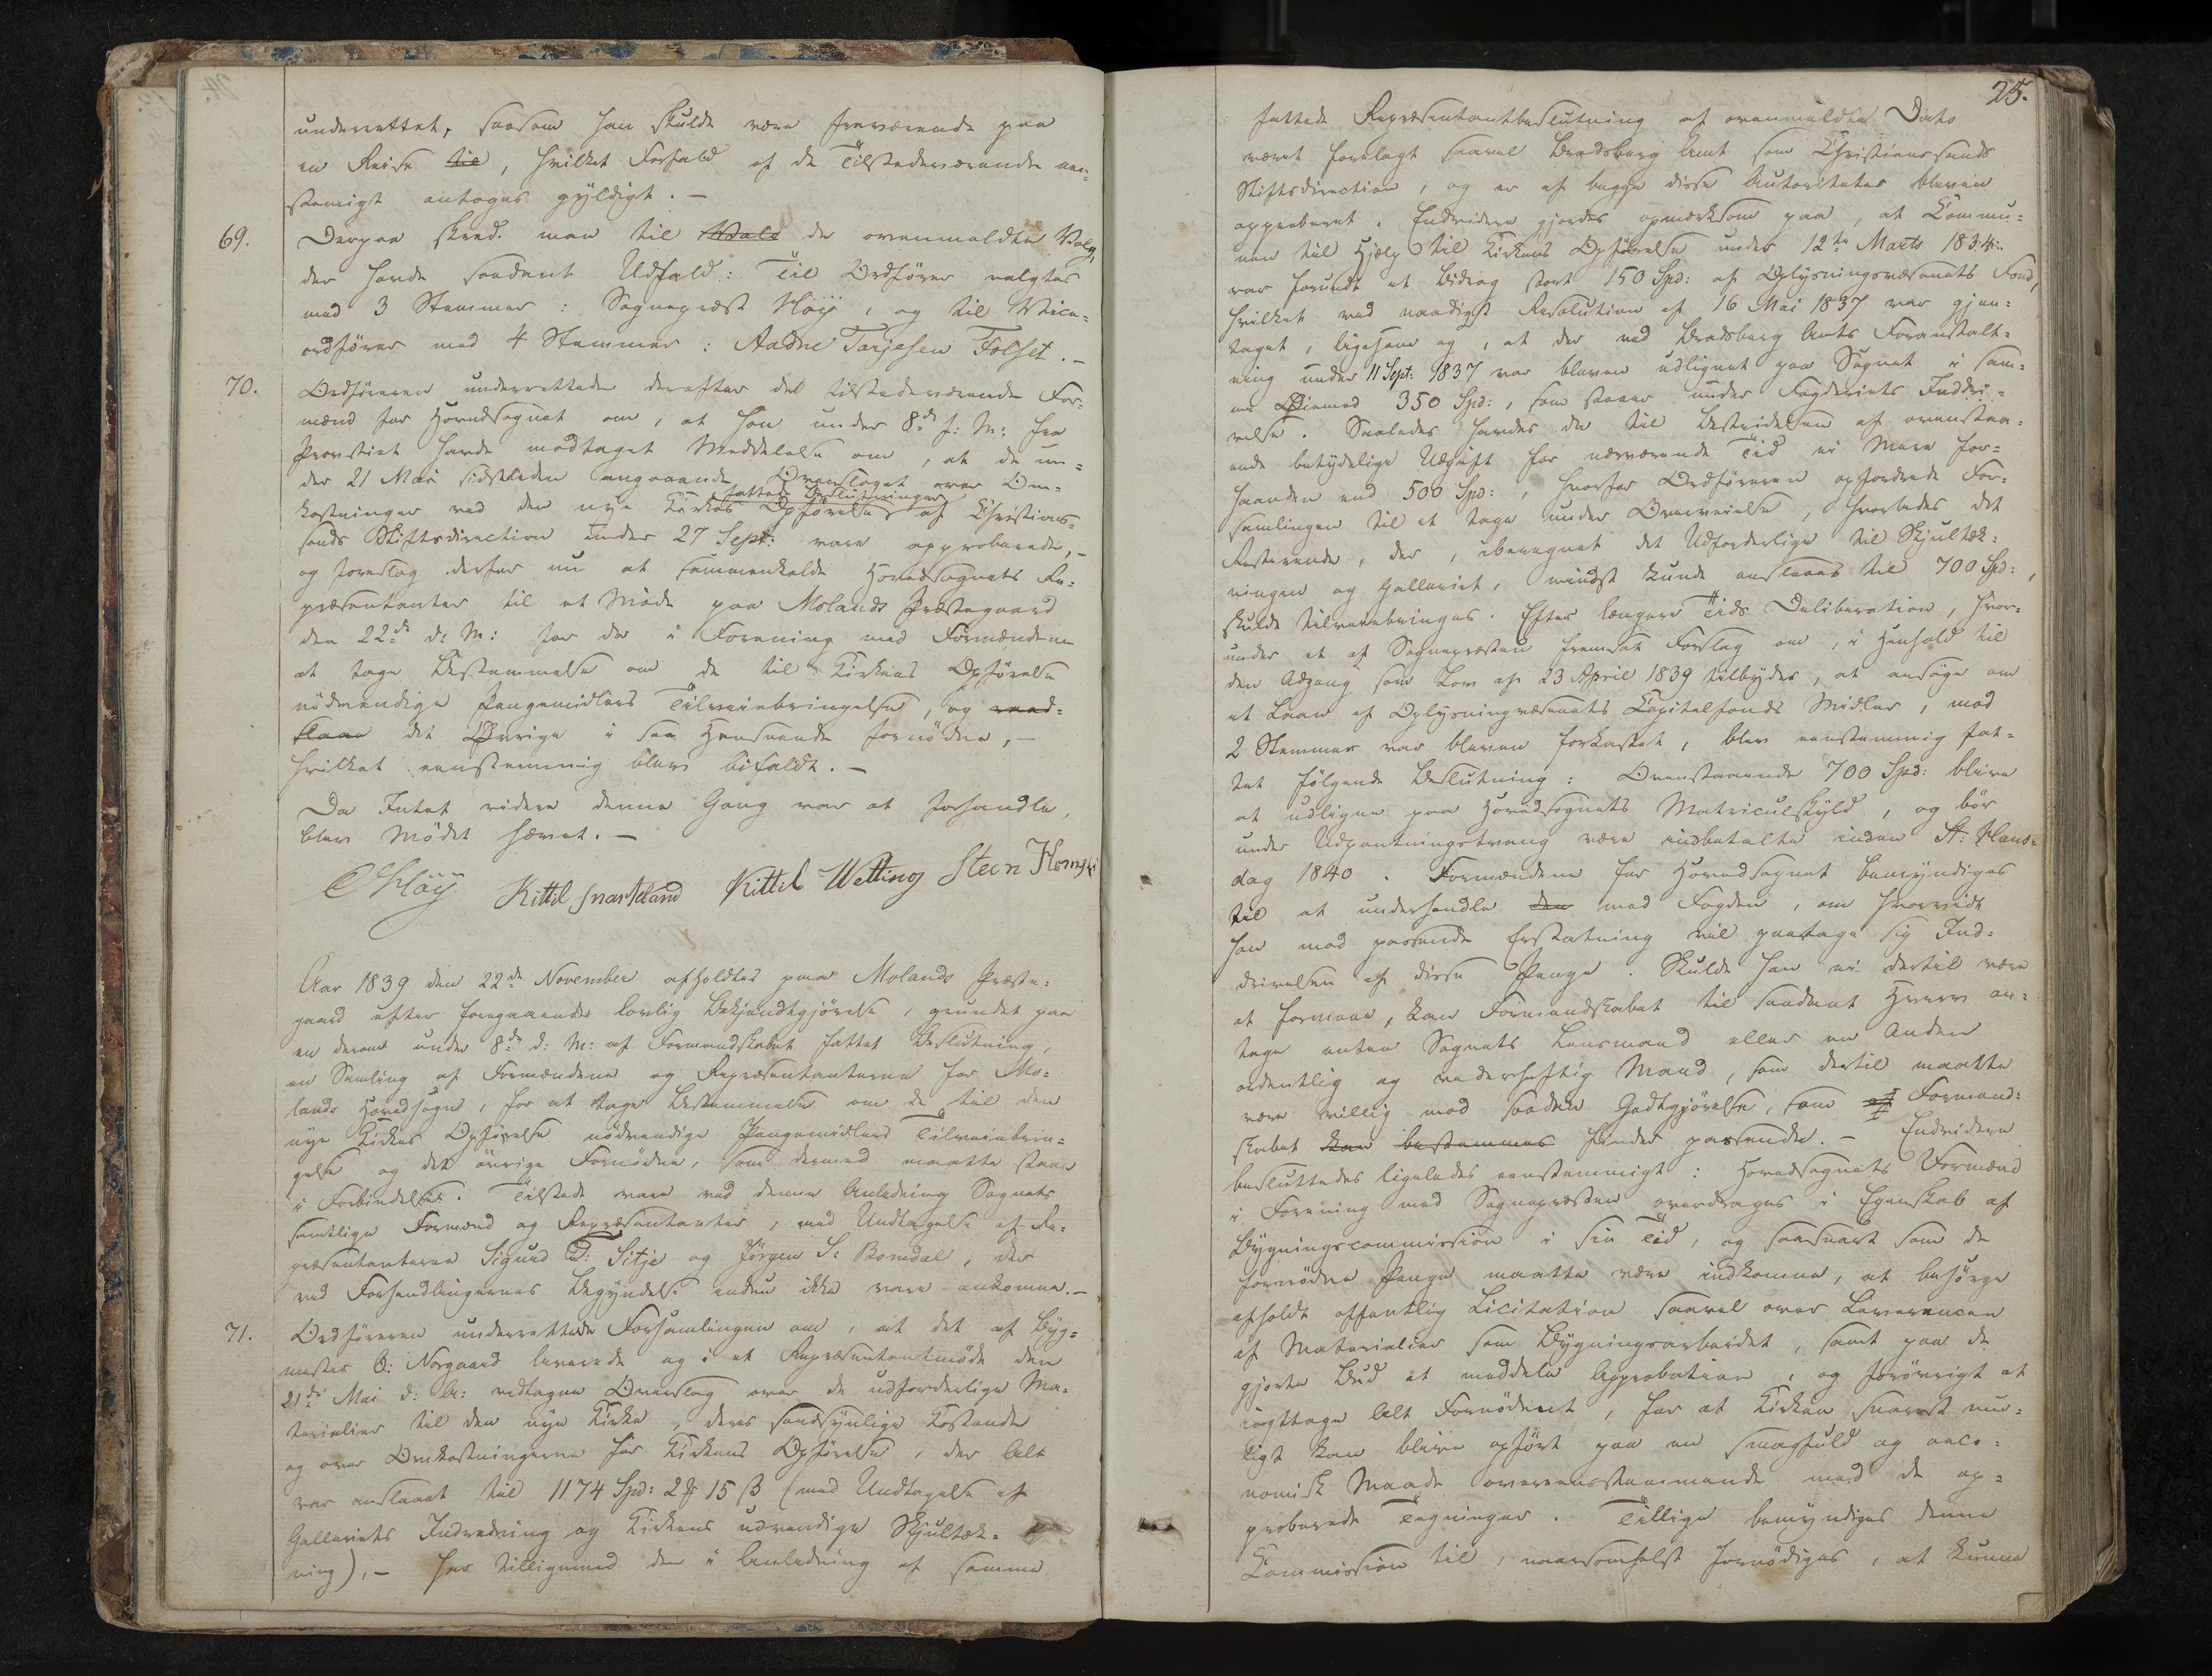 underrettet, saasom han skulde være fraværende paa
en Reise til, hvilket Forfald af de Tilstedeværende een-
stemigt antoges gyldigt. —
69. Derpaa skred man til Valg de ovenmeldte Valg,
der havde saadant Udfald: Til Ordfører valgtes
med 3 Stemmer: Sognepræst Høÿ, og til Vice-
ordfører med 4 Stemmer: Aadne Tarjesen Folset. —
70. Ordføreren underrettede derefter det tilstedeværende For-
mænd for Hovedsognet om, at han under 8de f: M: fra
Provstiet havde modtaget Meddelelse om, at de un-
der 21 Mai sidstleden angaaende Overslaget over Om-
fattede Beslutninger
kostninger ved den nye Kirkes Opførelse af Christian-
sands Stiftsdirection under 27 Sept: vare approberede, —
og foreslog derfor nu at sammenkalde Hovedsognets Re-
præsentanter til et Møde paa Molands Præstegaard
den 22de d: M: for da i Forening med Formændene
at tage Bestemmelse om de til Kirkens Opførelse
nødvendige Pengemidlers Tilveiebringelse, og raad-
slaae det Øvrige i saa Henseende fornødne, —
hvilket eenstemmig blev bifaldt. —
Da Intet videre denne Gang var at forhandle,
blev Mødet hævet. —
CHøÿ Kittil Snarteland Kittil Wetting Steen
Aar 1839 den 22de November afholdtes paa Molands Præste-
gaard efter foregaaende lovlig Bekjendtgjørelse, grundet paa
en derom under 8de d: M: af Formandskabet fattet Beslutning,
en Samling af Formændene og Repræsentanterne for Mo-
lands Hovedsogn, for at tage Bestemmelse om de til den
nye Kirkes Opførelse nødvendige Pengemidlers Tilveiebrin-
gelse og det øvrige Fornødne, som dermed maatte staae
i Forbindelse. Tilstede vare ved denne Anledning Sognets
samtlige Formænd og Repræsentanter, med Undtagelse af Re-
præsentanterne Sigurd T: Sitje og Jørgen S: Bomdal, der
ved Forhandlingernes Begyndelse endnu ikke vare ankomne. —
71. Ordføreren underrettede Forsamlingen om, at det af Byg-
mester O: Norgaard leverede og i et Repræsentantmøde den
21de Mai d: A: vedtagne Overslag over de udforderlige Ma-
terialier til den nye Kirke, deres sandsynlige Kostende
og over Omkostningerne for Kirkens Opførelse, der Alt
var anslaaet til 1174 Spd: 2 ₰ 15 ß (med Undtagelse af
Galleriets Indredning og Kirkens udvendige Skjultæk-
ning), — har tilligemed den i Anledning af samme
25.
fattede Repræsentantbeslutning af ovenmeldte Dato
været forelagt saavel Bradsberg Amt som Christianssands
Stiftsdirection, og er af begge disse Autoriteter bleven
approberet. Endvidere gjordes opmærksom paa, at Commu-
nen til Hjelp til Kirkens Opførelse under 12te Marts 1834
var forundt et Bidrag stort 150 Spd: af Oplysningsvæsenets Fond,
hvilket ved naadigst Resolution af 16 Mai 1837 var gjen-
taget, ligesom og, at der ved Bradsberg Amts Foranstalt-
ning under 11 Sept: 1837 var bleven udlignet paa Sognet i sam-
me Øiemed 350 Spd:, som staaer under Fogderiets Inddri-
velse. Saaledes havdes da til Bestridelsen af ovenstaa-
ende betydelige Udgift for nærværende Tid ei mere for-
haanden end 500 Spd:, hvorfor Ordføreren opfordrede For-
samlingen til at tage under Overveielse, hvorledes det
Resterende, der, iberegnet det Udforderlige til Skjultæk-
ningen og Galleriet, mindst kunde ansees til 700 Spd:,
skulde tilveiebringes. Efter længere Tids Deliberation, hvor-
under et af Sognepræsten fremsat Forslag om, i Henhold til
den Adgang som Lov af 23 April 1839 tilbyder, at ansøge om
et Laan af Oplysningvæsenets Capitalfonds Midler, mod
2 Stemmer var bleven forkastet, blev eenstemmig fat-
tet følgende Beslutning: Ovenstaaende 700 Spd: blive
at udligne paa Hovedsognets Matriculskyld, og bør
under Udpantningstvang være indbetalte inden St: Hans-
dag 1840. Formændene for Hovedsognet bemyndiges
til at underhandle den med Fogden, om hvorvidt
han mod passende Erstatning vil paatage sig Ind-
drivelsen af disse Penge. Skulde han ei dertil være
at formaae, kan Formandskabet til saadant Hverv an-
tage enten Sognets Lensmand eller en Anden
ordentlig og vederhæftig Mand, som dertil maatte
være villig mod saadan Godtgjørelse, som af Formand-
skabet kan bestemmes finder passende. — Endvidere
besluttedes ligeledes eenstemmigt: Hovedsognets Formænd
i Forening med Sognepræsten overdrages i Egenskab af
Bygningscommission i sin Tid, og saasnart som de
fornødne Penge maatte være indkomne, at besørge
afholdt offentlig Licitation saavel over Leverancen
af Materialier som Bygningsarbeidet, samt paa de
gjorte Bud at meddele Approbation, og forøvrigt at
iagttage Alt Fornødent, for at Kirken snarest mu-
ligt kan blive opført paa en smagfuld og oeco-
nomisk Maade overeensstemmende med de ap-
proberede Tegninger. Tillige bemyndiges denne
Commission til, naarsomhelst fornødiges, at kunne